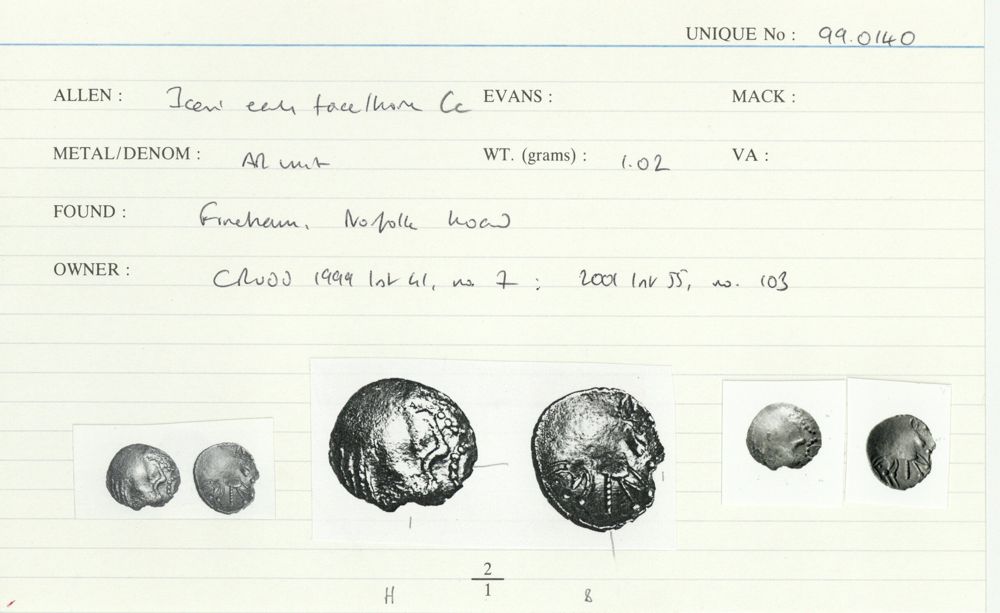 UNIQUE No : 99.0140
ALLEN : Iceni early face/horse Cc EVANS : MACK :
METAL/DENOM : AR unit WT. (grams) : 1.02 VA :
FOUND : Fincham, Norfolk hoard
OWNER : CRUDD 1999 list 41, no. 7 ; 2001 list 55, no. 103
2
1
H B